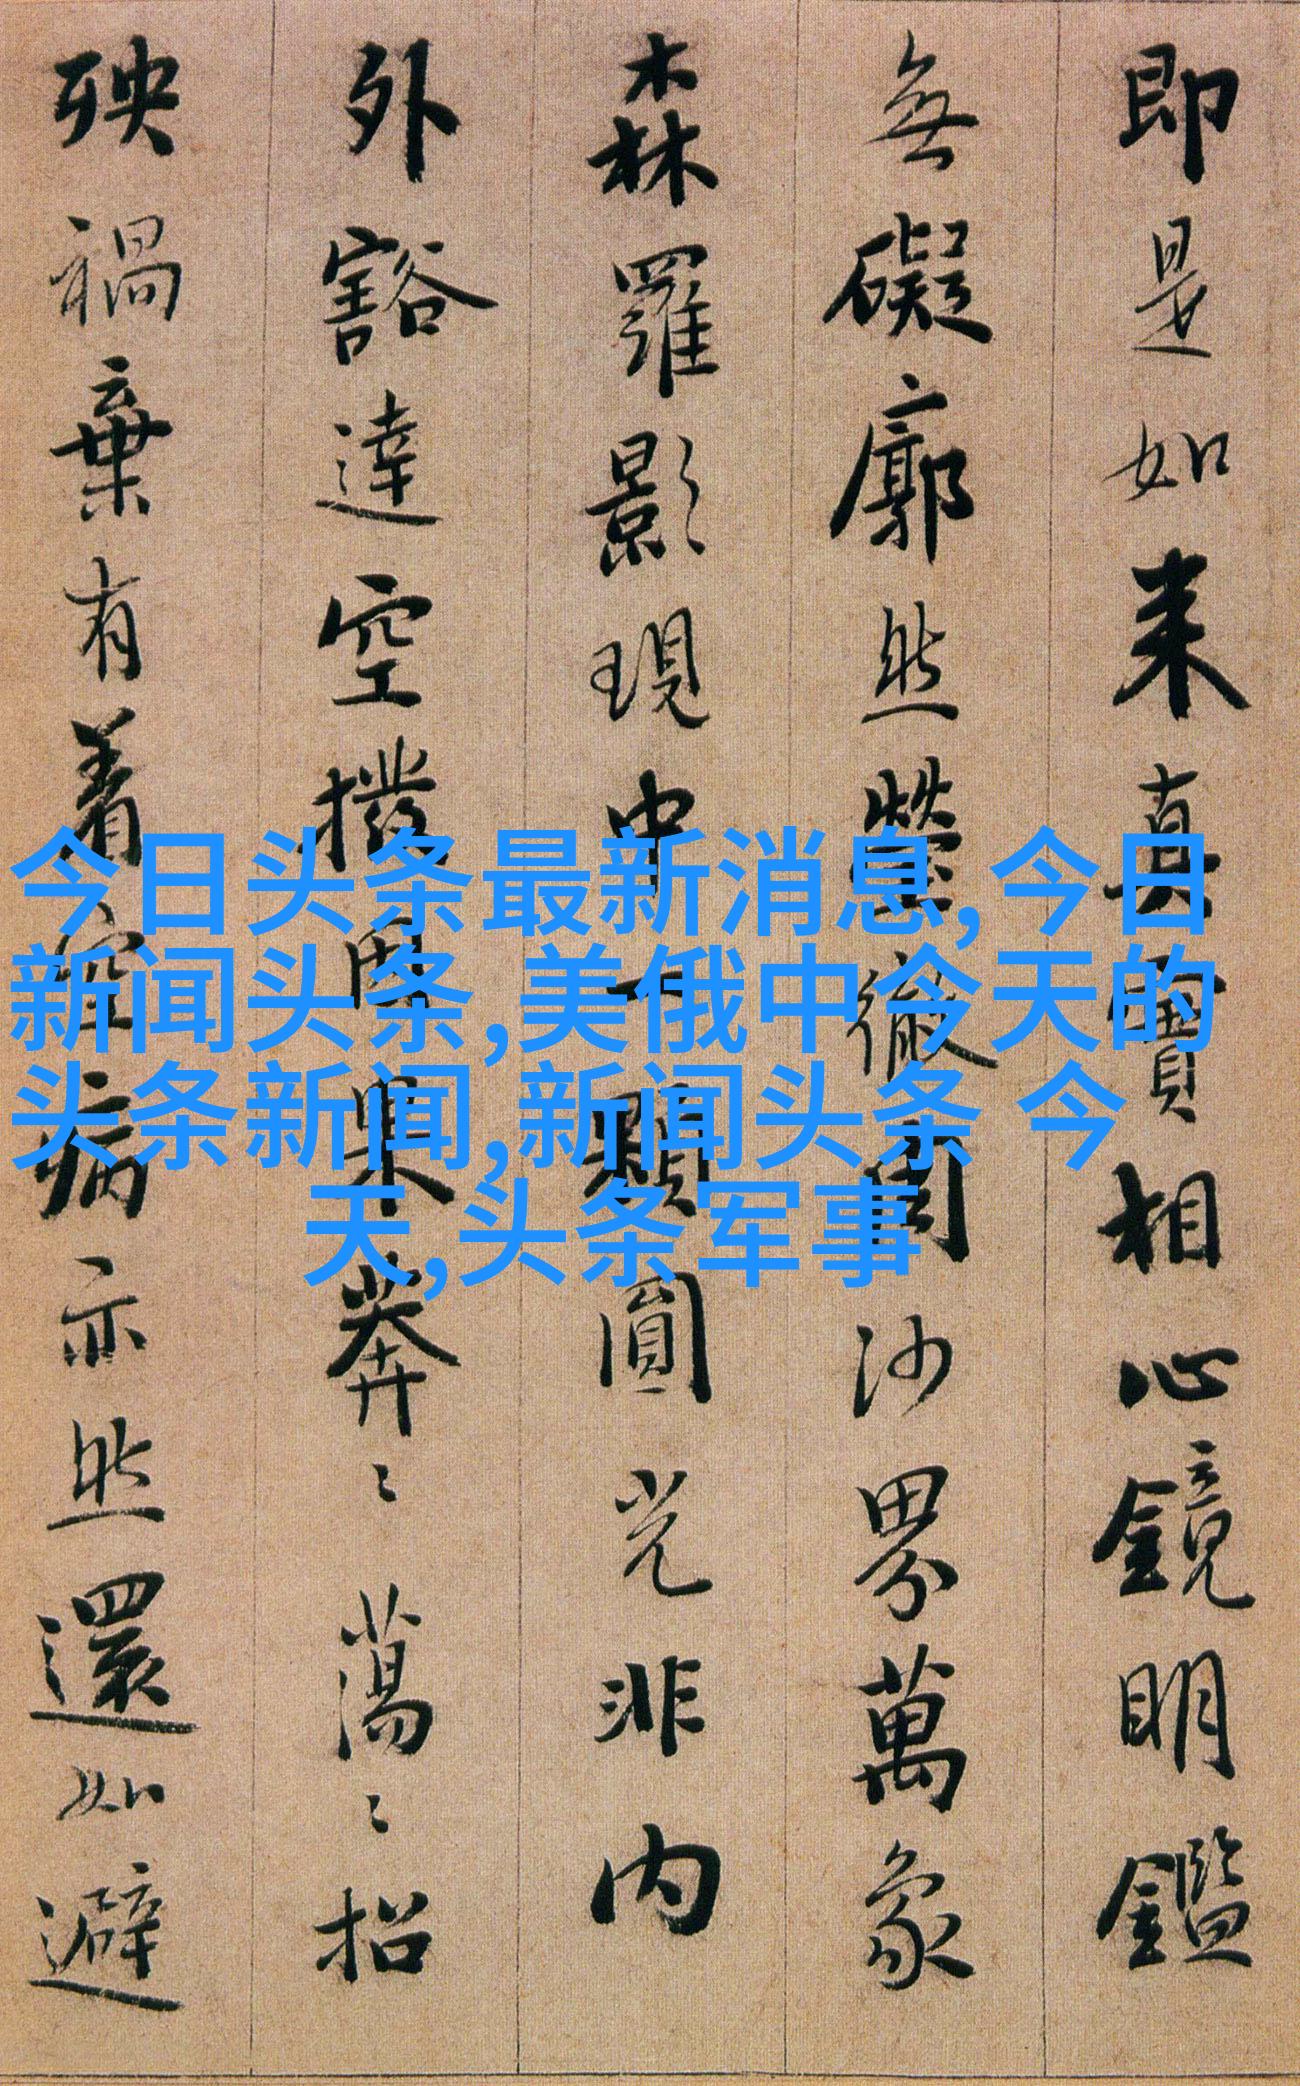 即是如来真實相心鏡明鑑
無礙廓然瑩徹周沙界萬象
森羅影現中一顆圓光非内
外豁達空撥因果莽〻蕩〻招
殃禍棄有着空病亦然還如避
今日头条最新消息,今日
新闻头条,美俄中今天的
头条新闻,新闻头条 今
天,头条军事